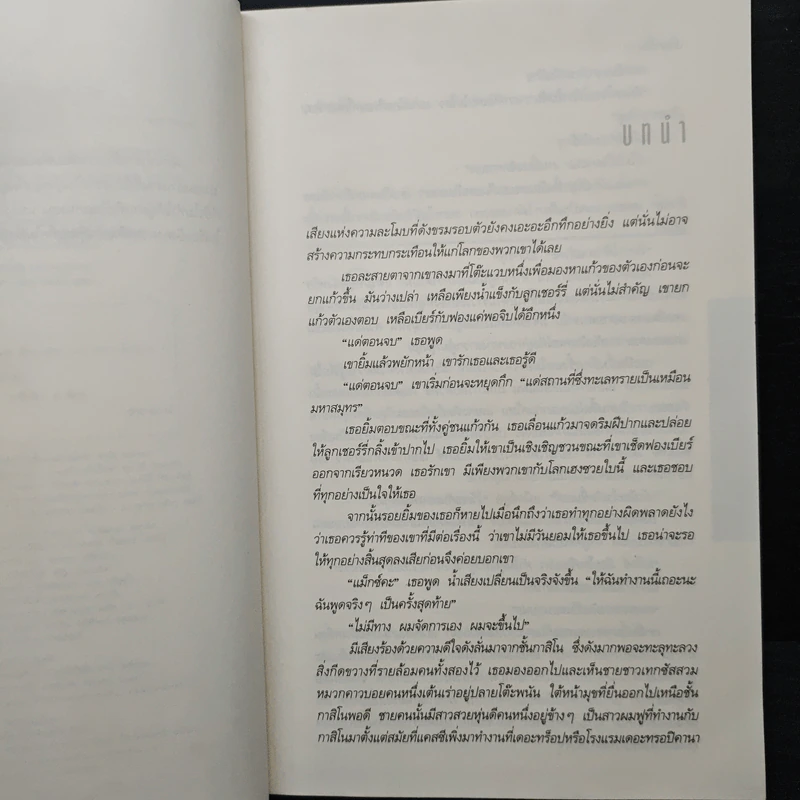 บทนำ
เสียงแห่งความละโมบที่ดังขรมรอบตัวยังคงเอะอะอึกทึกอย่างยิ่ง แต่นั่นไม่อาจ
สร้างความกระทบกระเทือนให้แก่โลกของพวกเขาได้เลย
เธอละสายตาจากเขาลงมาที่โต๊ะแวบหนึ่งเพื่อมองหาแก้วของตัวเองก่อนจะ
ยกแก้วขึ้น มันว่างเปล่า เหลือเพียงน้ำแข็งกับลูกเชอร์รี่ แต่นั่นไม่สำคัญ เขายก
แก้วตัวเองตอบ เหลือเบียร์กับฟองแค่พอจิบได้อีกหนึ่ง
“แด่ตอนจบ” เธอพูด
เขายิ้มแล้วพยักหน้า เขารักเธอและเธอรู้ดี
“แด่ตอนจบ” เขาเริ่มก่อนจะหยุดกึก “แด่สถานที่ซึ่งทะเลทรายเป็นเหมือน
มหาสมุทร”
เธอยิ้มตอบขณะที่ทั้งคู่ชนแก้วกัน เธอเลื่อนแก้วมาจดริมฝีปากและปล่อย
ให้ลูกเชอร์รี่กลิ้งเข้าปากไป เธอยิ้มให้เขาเป็นเชิงเชิญชวนขณะที่เขาเช็ดฟองเบียร์
ออกจากเรียวหนวด เธอรักเขา มีเพียงพวกเขากับโลกเฮงซวยใบนี้ และเธอชอบ
ที่ทุกอย่างเป็นใจให้เธอ
จากนั้นรอยยิ้มของเธอก็หายไปเมื่อนึกถึงว่าเธอทำทุกอย่างผิดพลาดยังไง
ว่าเธอควรรู้ท่าทีของเขาที่มีต่อเรื่องนี้ ว่าเขาไม่มีวันยอมให้เธอขึ้นไป เธอน่าจะรอ
ให้ทุกอย่างสิ้นสุดลงเสียก่อนจึงค่อยบอกเขา
“แม็กซ์คะ” เธอพูด น้ำเสียงเปลี่ยนเป็นจริงจังขึ้น “ให้ฉันทำงานนี้เถอะนะ
ฉันพูดจริงๆ เป็นครั้งสุดท้าย”
“ไม่มีทาง ผมจัดการเอง ผมจะขึ้นไป”
มีเสียงร้องด้วยความดีใจดังลั่นมาจากชั้นกาสิโน ซึ่งดังมากพอจะทะลุทะลวง
สิ่งกีดขวางที่รายล้อมคนทั้งสองไว้ เธอมองออกไปและเห็นชายชาวเทกซัสสวม
หมวกคาวบอยคนหนึ่งเต้นเร่าอยู่ปลายโต๊ะพนัน ใต้หน้ามุขที่ยื่นออกไปเหนือชั้น
กาสิโนพอดี ชายคนนั้นมีสาวสวยหุ่นดีคนหนึ่งอยู่ข้างๆ เป็นสาวผมฟูที่ทำงานกับ
กาสิโนมาตั้งแต่สมัยที่แคสซีเพิ่งมาทำงานที่เดอะทร็อปหรือโรงแรมเดอะทรอปิคานา